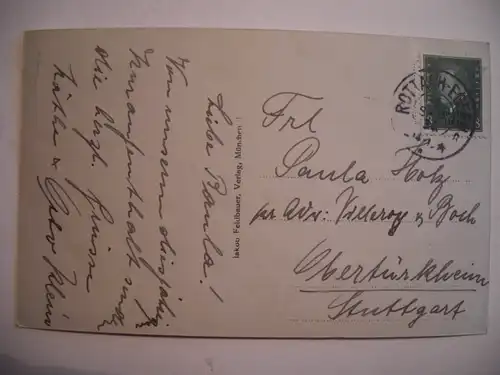 Liebe Paula!
Von unserm diesjähr.
Kuraufenthalt send.
die hrzl. Grüsse
Käthe u. Otto Klein
Jakob Feldbauer, Verlag, München
Frl
Paula Holz
pr. Adr. Villeroy & Boch
Obertürkheim
Stuttgart
ROTTACH-EG